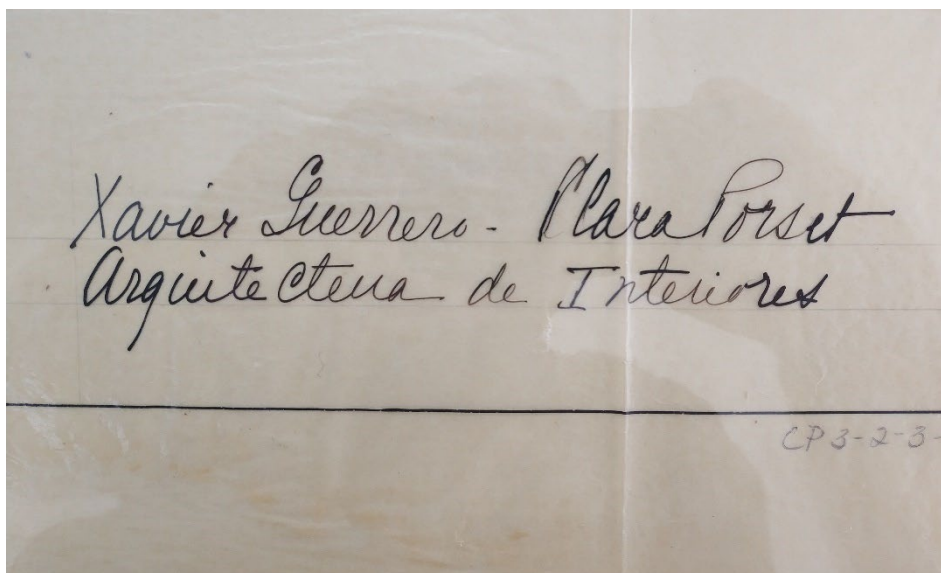 Xavier Guerrero - Clara Porset
Arquitectura de Interiores
CP 3-2-3-